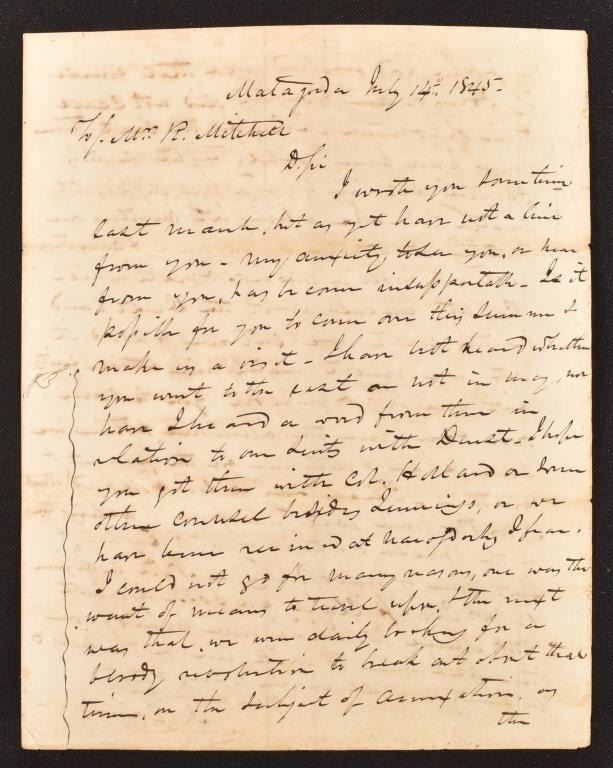 Matagorda July 14th. 1845.
To/. Mr. R. Mitchell
D. Sir
I wrote you sometime
last month, but as yet have not a line
from you - my anxiety to see you, or hear
from you, has become insupportable - Is it
possible for you to come over this summer &
make us a visit - I have not heard whether
you went to the east or not in may, nor
have I heard a word from there in
relation to our suits with Durst - I hope
you got there with Col. Holland or some
other counsel besides Jennings, or we
have been ruined at Nacogdoches I fear.
I could not go for many reasons, one was the
want of means to travel upon, & the next
was that, we were daily looking for a
bloody revolution to break out about that
time, on the subject of annexation, as
the